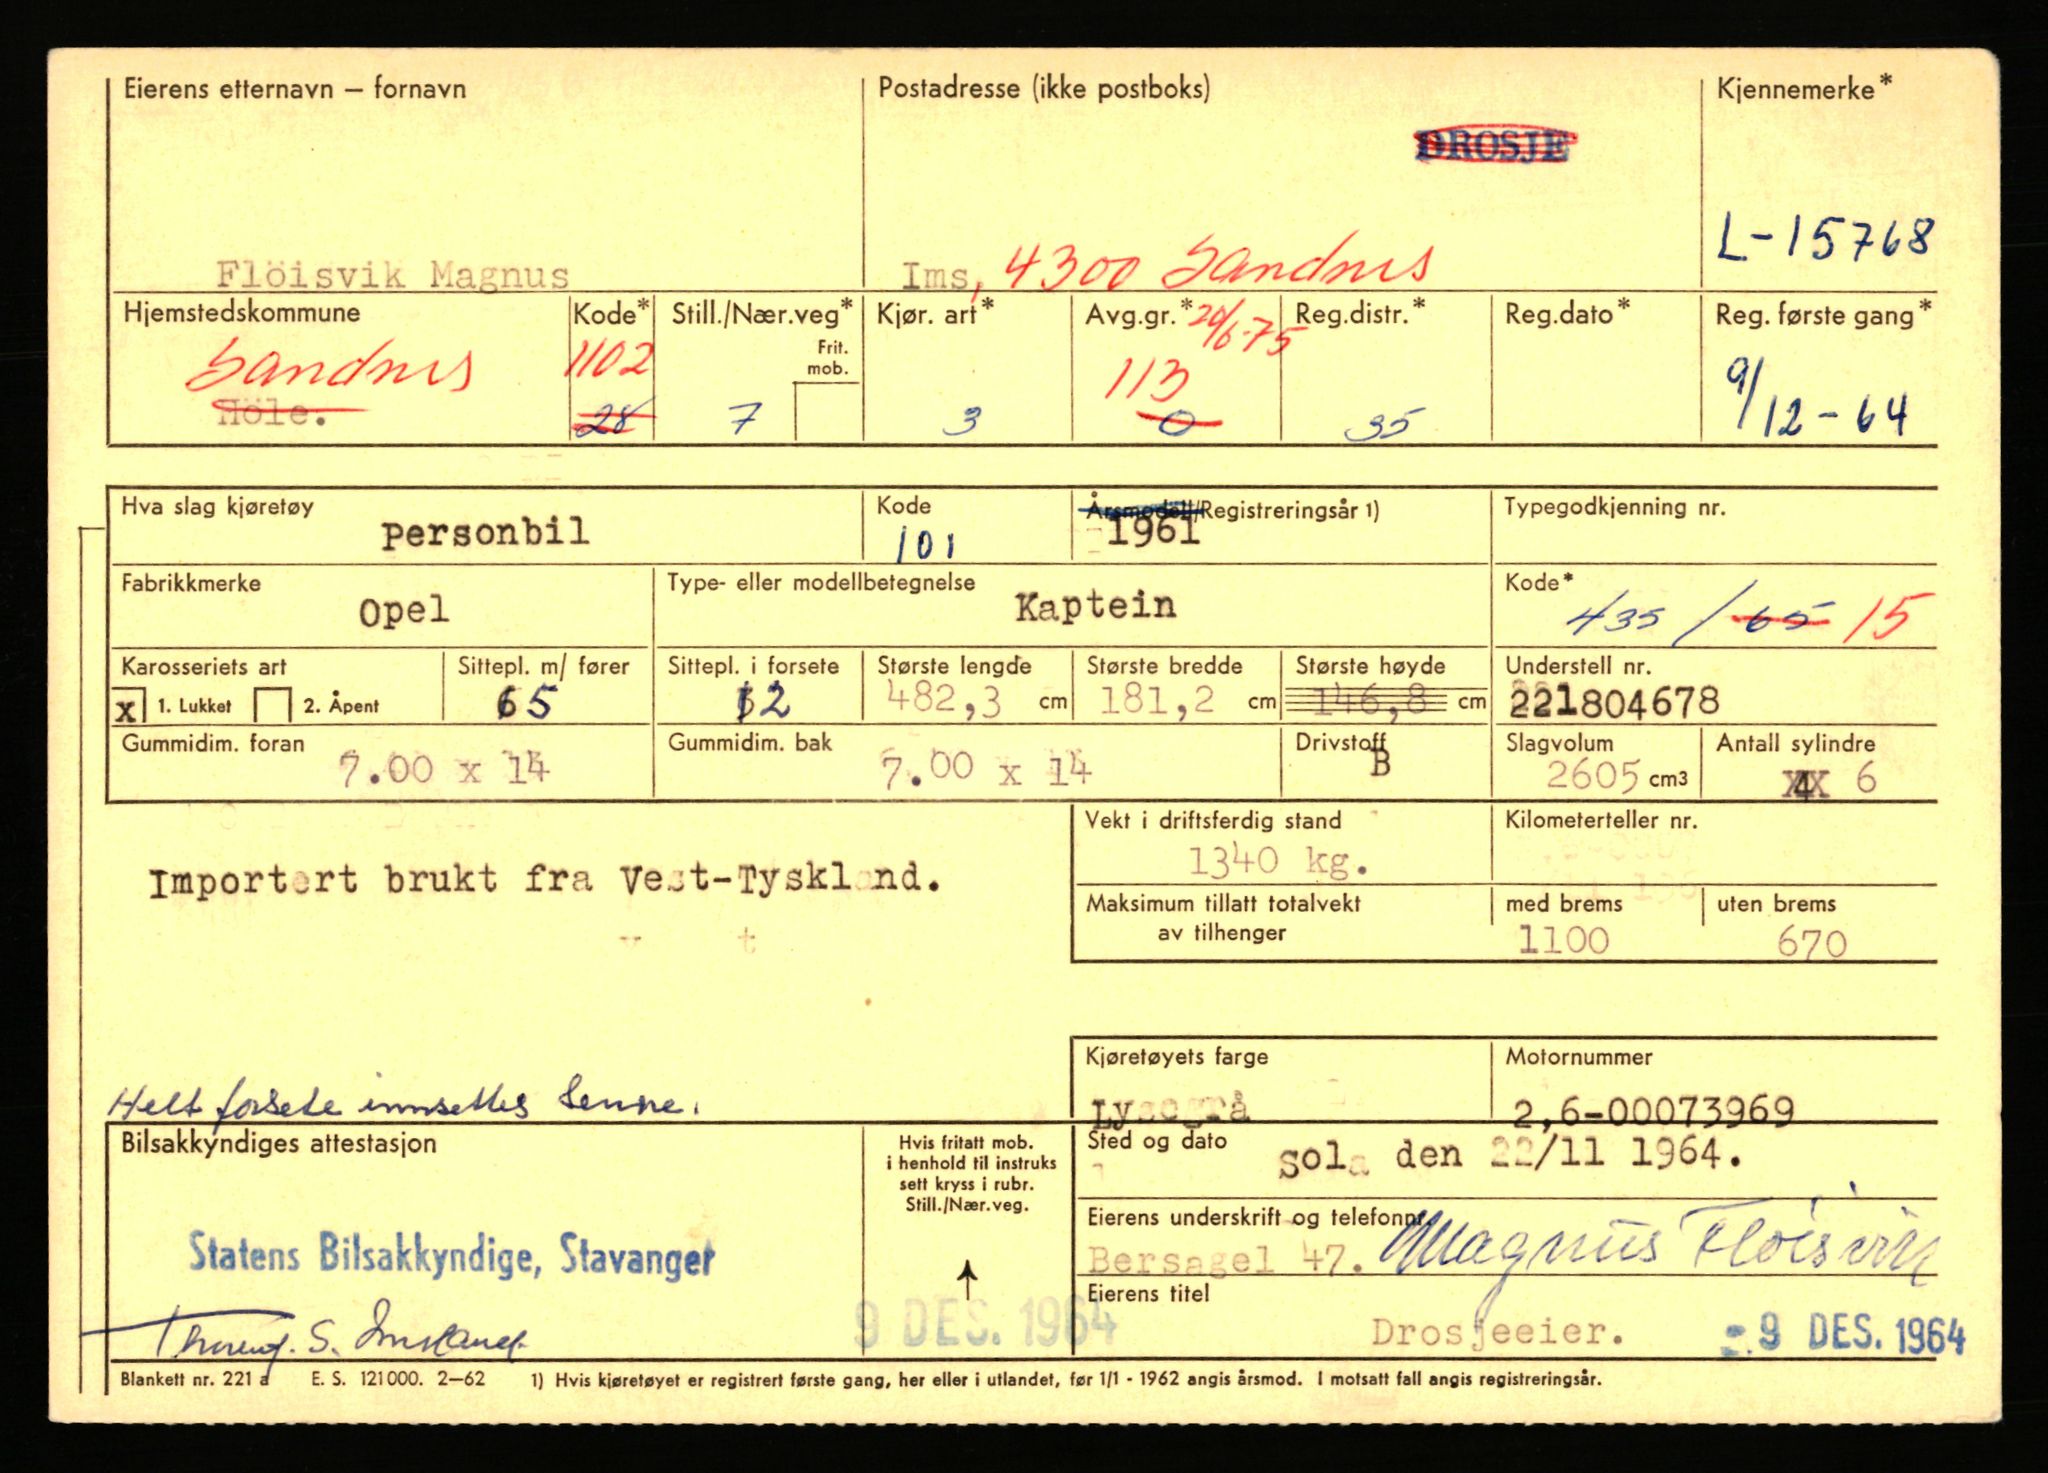 Eierens etternavn – fornavn
Postadresse (ikke postboks)
Kjennemerke*
DROSJE
L-15768
Flöisvik Magnus
Ims, 4300 Sandnes
Hjemstedskommune
Kode*
Still./Nær.veg*
Frit. mob.
Kjør. art*
Avg.gr.*
20/6-75
Reg.distr.*
Reg.dato*
Reg. første gang*
Sandnes
1102
113
9/12-64
Höle.
28
7
3
0
35
Hva slag kjøretøy
Personbil
Kode
101
Årsmodell/Registreringsår 1)
1961
Typegodkjenning nr.
Fabrikkmerke
Opel
Type- eller modellbetegnelse
Kaptein
Kode*
435 / 65 15
Karosseriets art
x 1. Lukket 2. Åpent
Sittepl. m/ fører
65
Sittepl. i forsete
12
Største lengde
482,3 cm
Største bredde
181,2 cm
Største høyde
146,8 cm
Understell nr.
221804678
Gummidim. foran
7.00 x 14
Gummidim. bak
7.00 x 14
Drivstoff
B
Slagvolum
2605 cm3
Antall sylindre
4 6
Vekt i driftsferdig stand
1340 kg.
Kilometerteller nr.
Importert brukt fra Vest-Tyskland.
Maksimum tillatt totalvekt
av tilhenger
med brems
1100
uten brems
670
Helt forsete innsettes senere.
Kjøretøyets farge
Lysegrå
Motornummer
2,6-00073969
Bilsakkyndiges attestasjon
Hvis fritatt mob.
i henhold til instruks
sett kryss i rubr.
Still./Nær.veg.
Sted og dato
Sola den 22/11 1964.
Statens Bilsakkyndige, Stavanger
Eierens underskrift og telefonnr.
Bersagel 47. Magnus Flöisvik
Eierens titel
Drosjeeier.
9 DES. 1964
-9 DES. 1964
S. Imsland
Blankett nr. 221 a E. S. 121000. 2–62 1) Hvis kjøretøyet er registrert første gang, her eller i utlandet, før 1/1 - 1962 angis årsmod. I motsatt fall angis registreringsår.